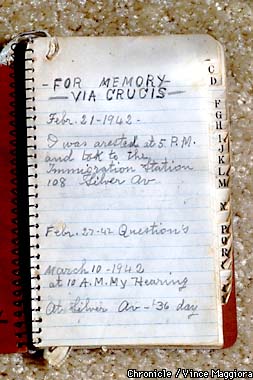 -FOR MEMORY-
-VIA CRUCIS-
Febr. 21-1942-
I was arested at 5. P.M.
and tok to the
Immigration Station
108. Silver Av.
Febr. 27-42 Question's
March 10-1942
at 10 A.M. My Hearing
At Silver Av - 36 day
C
D
F
G
H
I
J
K
L
M
N
P
Q
R
Chronicle / Vince Maggiora